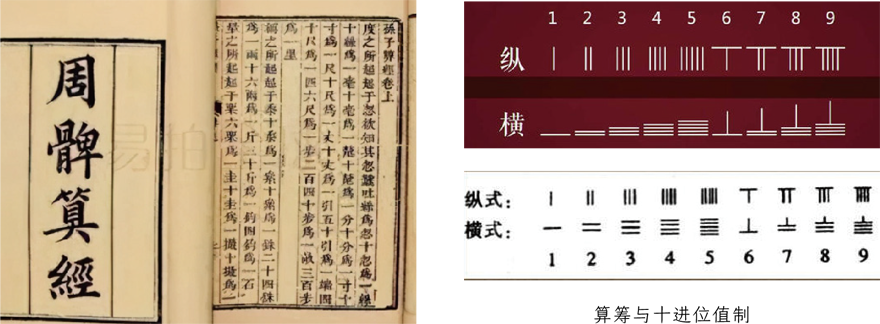 周髀算經
孫子算經卷上
度之所起起于忽欲知其忽蠶吐絲爲忽十忽爲一絲
十絲爲一毫十毫爲一氂十氂爲一分十分爲一寸十
寸爲一尺十尺爲一丈十丈爲一引五十引爲一端四
十尺爲一匹六尺爲一步二百四十步爲一畝三百步
爲一里
稱之所起起于黍十黍爲一絫十絫爲一銖二十四銖
爲一兩十六兩爲一斤三十斤爲一鈞四鈞爲一石
量之所起起于粟六粟爲一圭十圭爲一撮十撮爲一
1 2 3 4 5 6 7 8 9
纵
横
纵式：
横式：
1 2 3 4 5 6 7 8 9
算筹与十进位值制